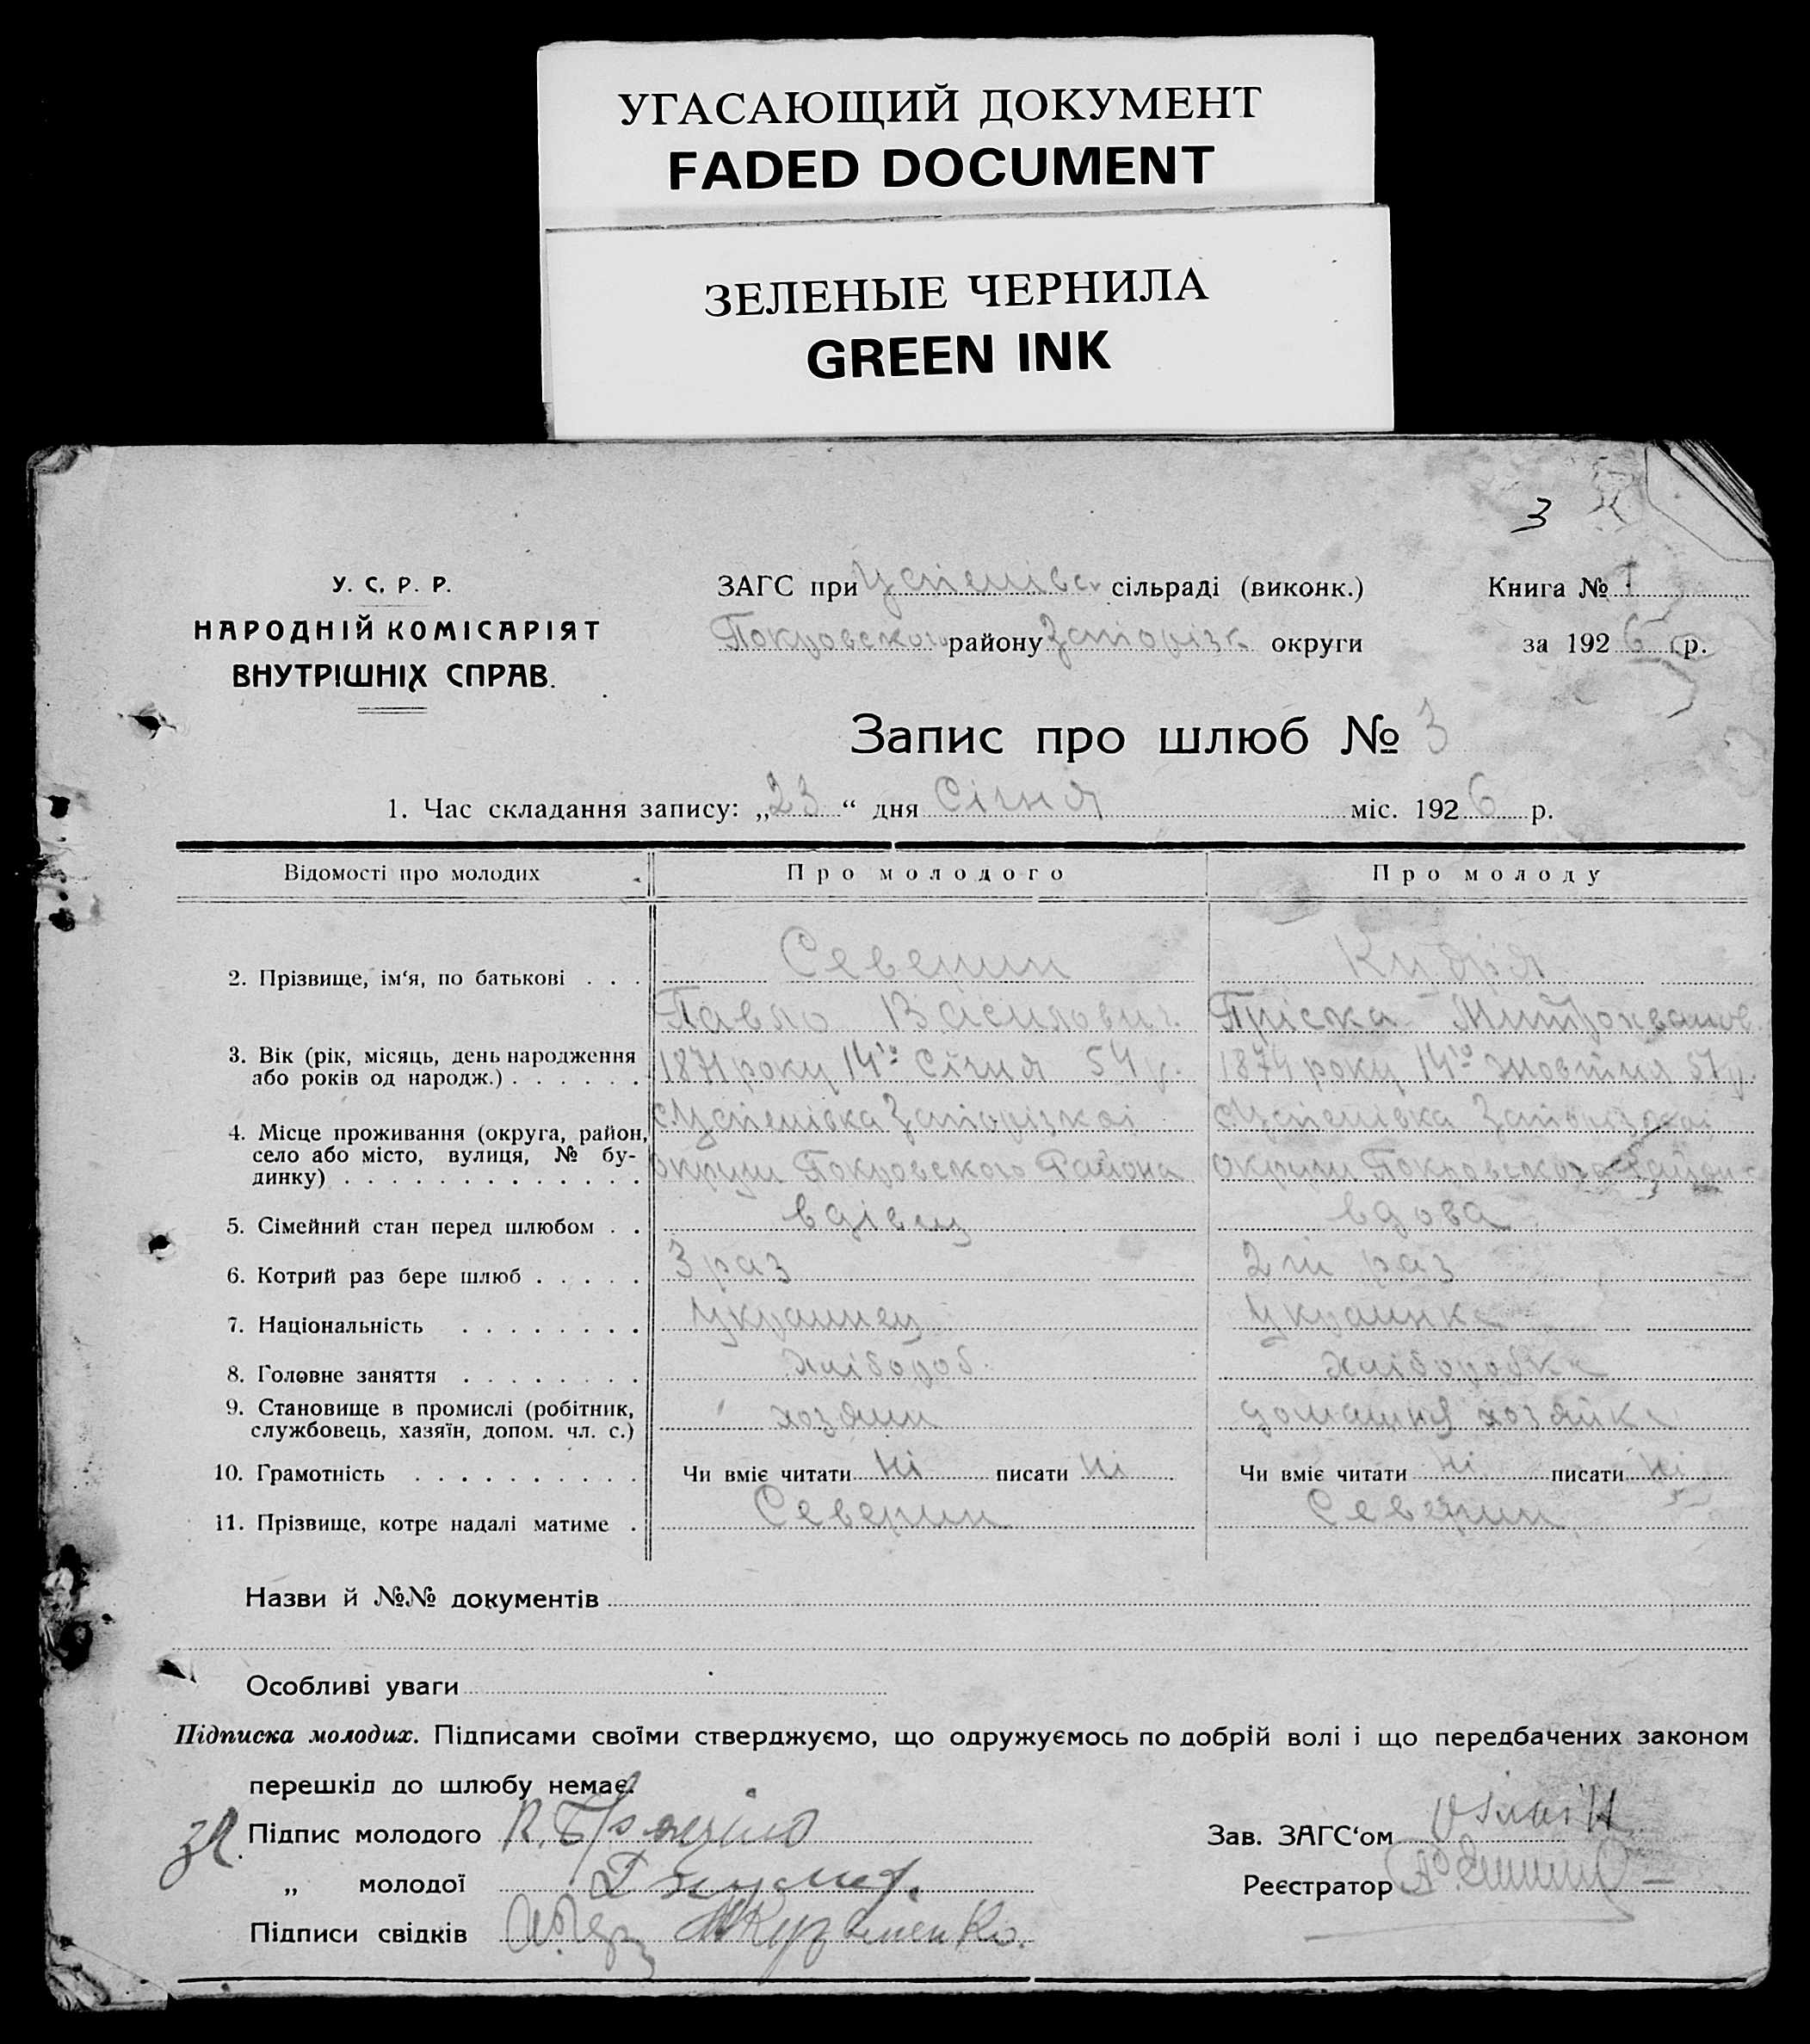 УГАСАЮЩИЙ ДОКУМЕНТ
FADED DOCUMENT
ЗЕЛЕНЫЕ ЧЕРНИЛА
GREEN INK
3
У. С. Р. Р.
НАРОДНІЙ КОМІСАРІЯТ
ВНУТРІШНІХ СПРАВ.
ЗАГС при Успенівс. сільраді (виконк.)
Покровского району Запоріз. округи
Книга № 1
за 1926 р.
Запис про шлюб № 3
1. Час складання запису: „23“ дня Січня міс. 1926 р.
Відомості про молодих
Про молодого
Про молоду
2. Прізвище, ім‘я, по батькові . . .
Северин
Кудря
Павло Васильович.
Пріска Митрохванов.
3. Вік (рік, місяць, день народження
або років од народж.) . . . . . .
1871 року 14го Січня 54 р.
1874 року 14го Жовтня 51 р.
4. Місце проживання (округа, район,
село або місто, вулиця, № бу-
динку) . . . . . . . . . . . . .
с. Успенівка Запорізкоі
округи Покровского Района
с. Успенівка Запорізкоі
округи Покровского Район
5. Сімейний стан перед шлюбом . .
вдівец
вдова
6. Котрий раз бере шлюб . . . . .
3 раз
2 ий раз
7. Національність . . . . . . . .
Украинец
Украинка
8. Головне заняття . . . . . . . .
хлібороб.
хліборобка
9. Становище в промислі (робітник,
службовець, хазяїн, допом. чл. с.)
хозяин
домашня хозяйка
10. Грамотність . . . . . . . . . .
Чи вміє читати ні писати ні
Чи вміє читати ні писати ні
11. Прізвище, котре надалі матиме .
Северин
Северин
Назви й №№ документів
Особливі уваги
Підписка молодих. Підписами своїми стверджуємо, що одружуємось по добрій волі і що передбачених законом
перешкід до шлюбу немає.
за Підпис молодого
„ молодої
Підписи свідків
Зав. ЗАГС‘ом
Реєстратор